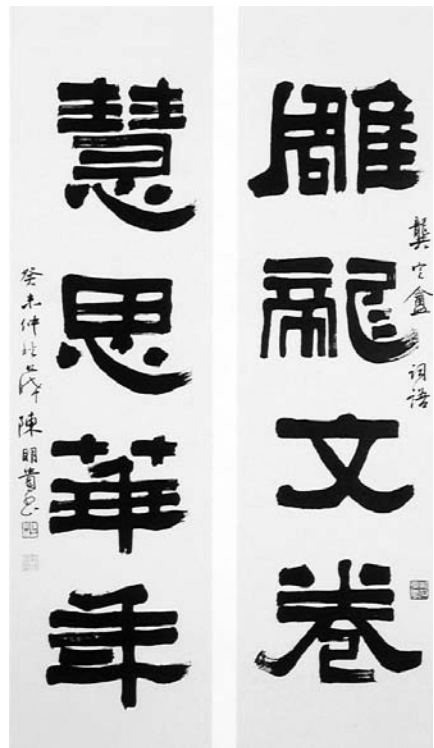 雕龍文卷
龔定盦 词語
慧思華年
癸未仲 陳明貴